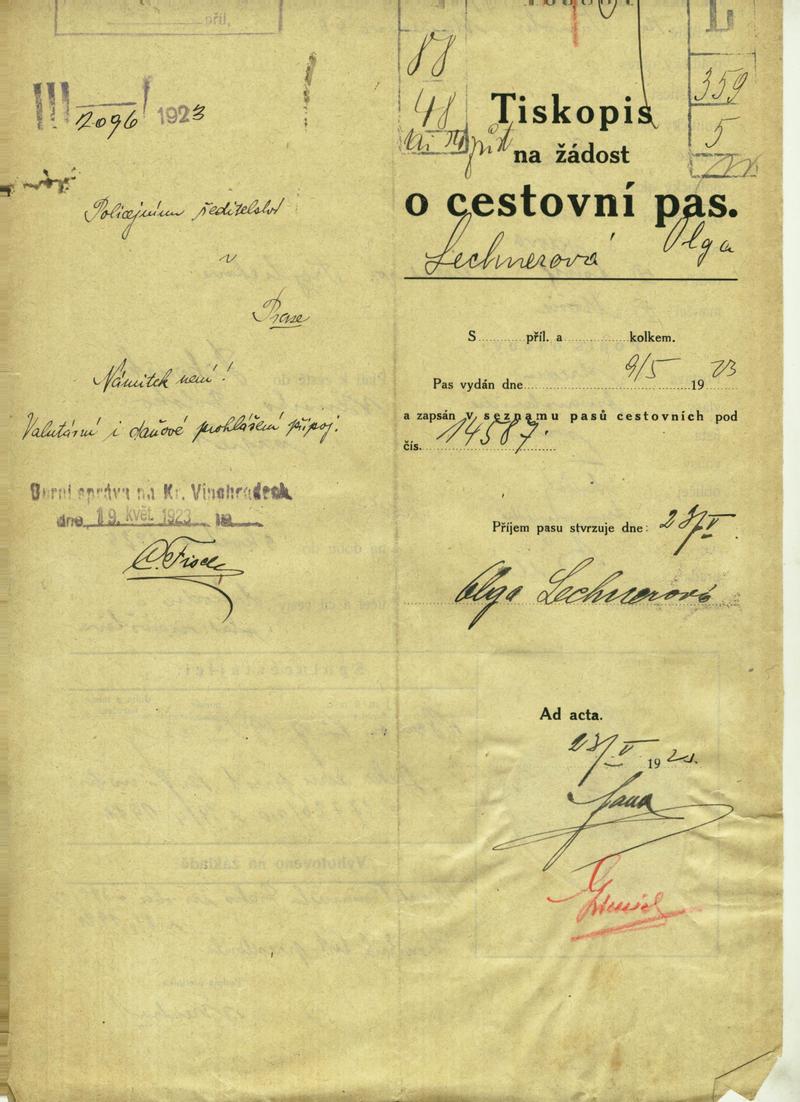 příl.
III 2096 / 1923
Policejnímu ředitelství
v
Praze
Námitek není!
Valutární i daňové prohlášení připoj.
Berní správa na Kr. Vinohradech
dne 19. květ. 1923 19
88
48
L
359
5
Tiskopis
na žádost
o cestovní pas.
Lechnerová Olga
S příl. a kolkem.
Pas vydán dne 9/5 1923
a zapsán v seznamu pasů cestovních pod
čís. 14587.
Příjem pasu stvrzuje dne: 23/V
Olga Lechnerová
Ad acta.
23/V 1923.